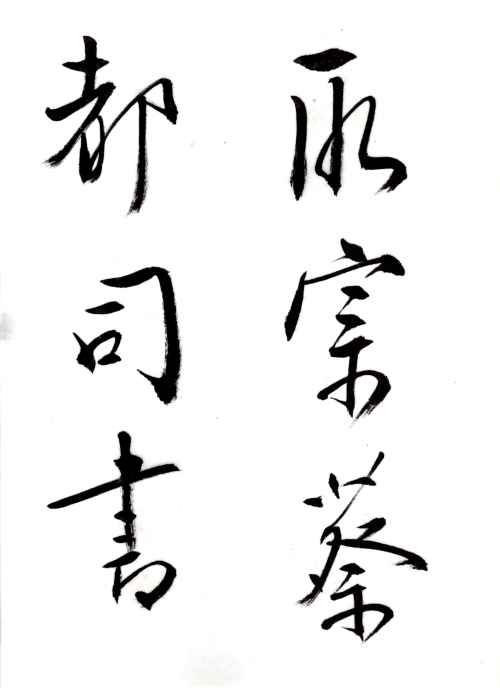 宗蔡
都司書